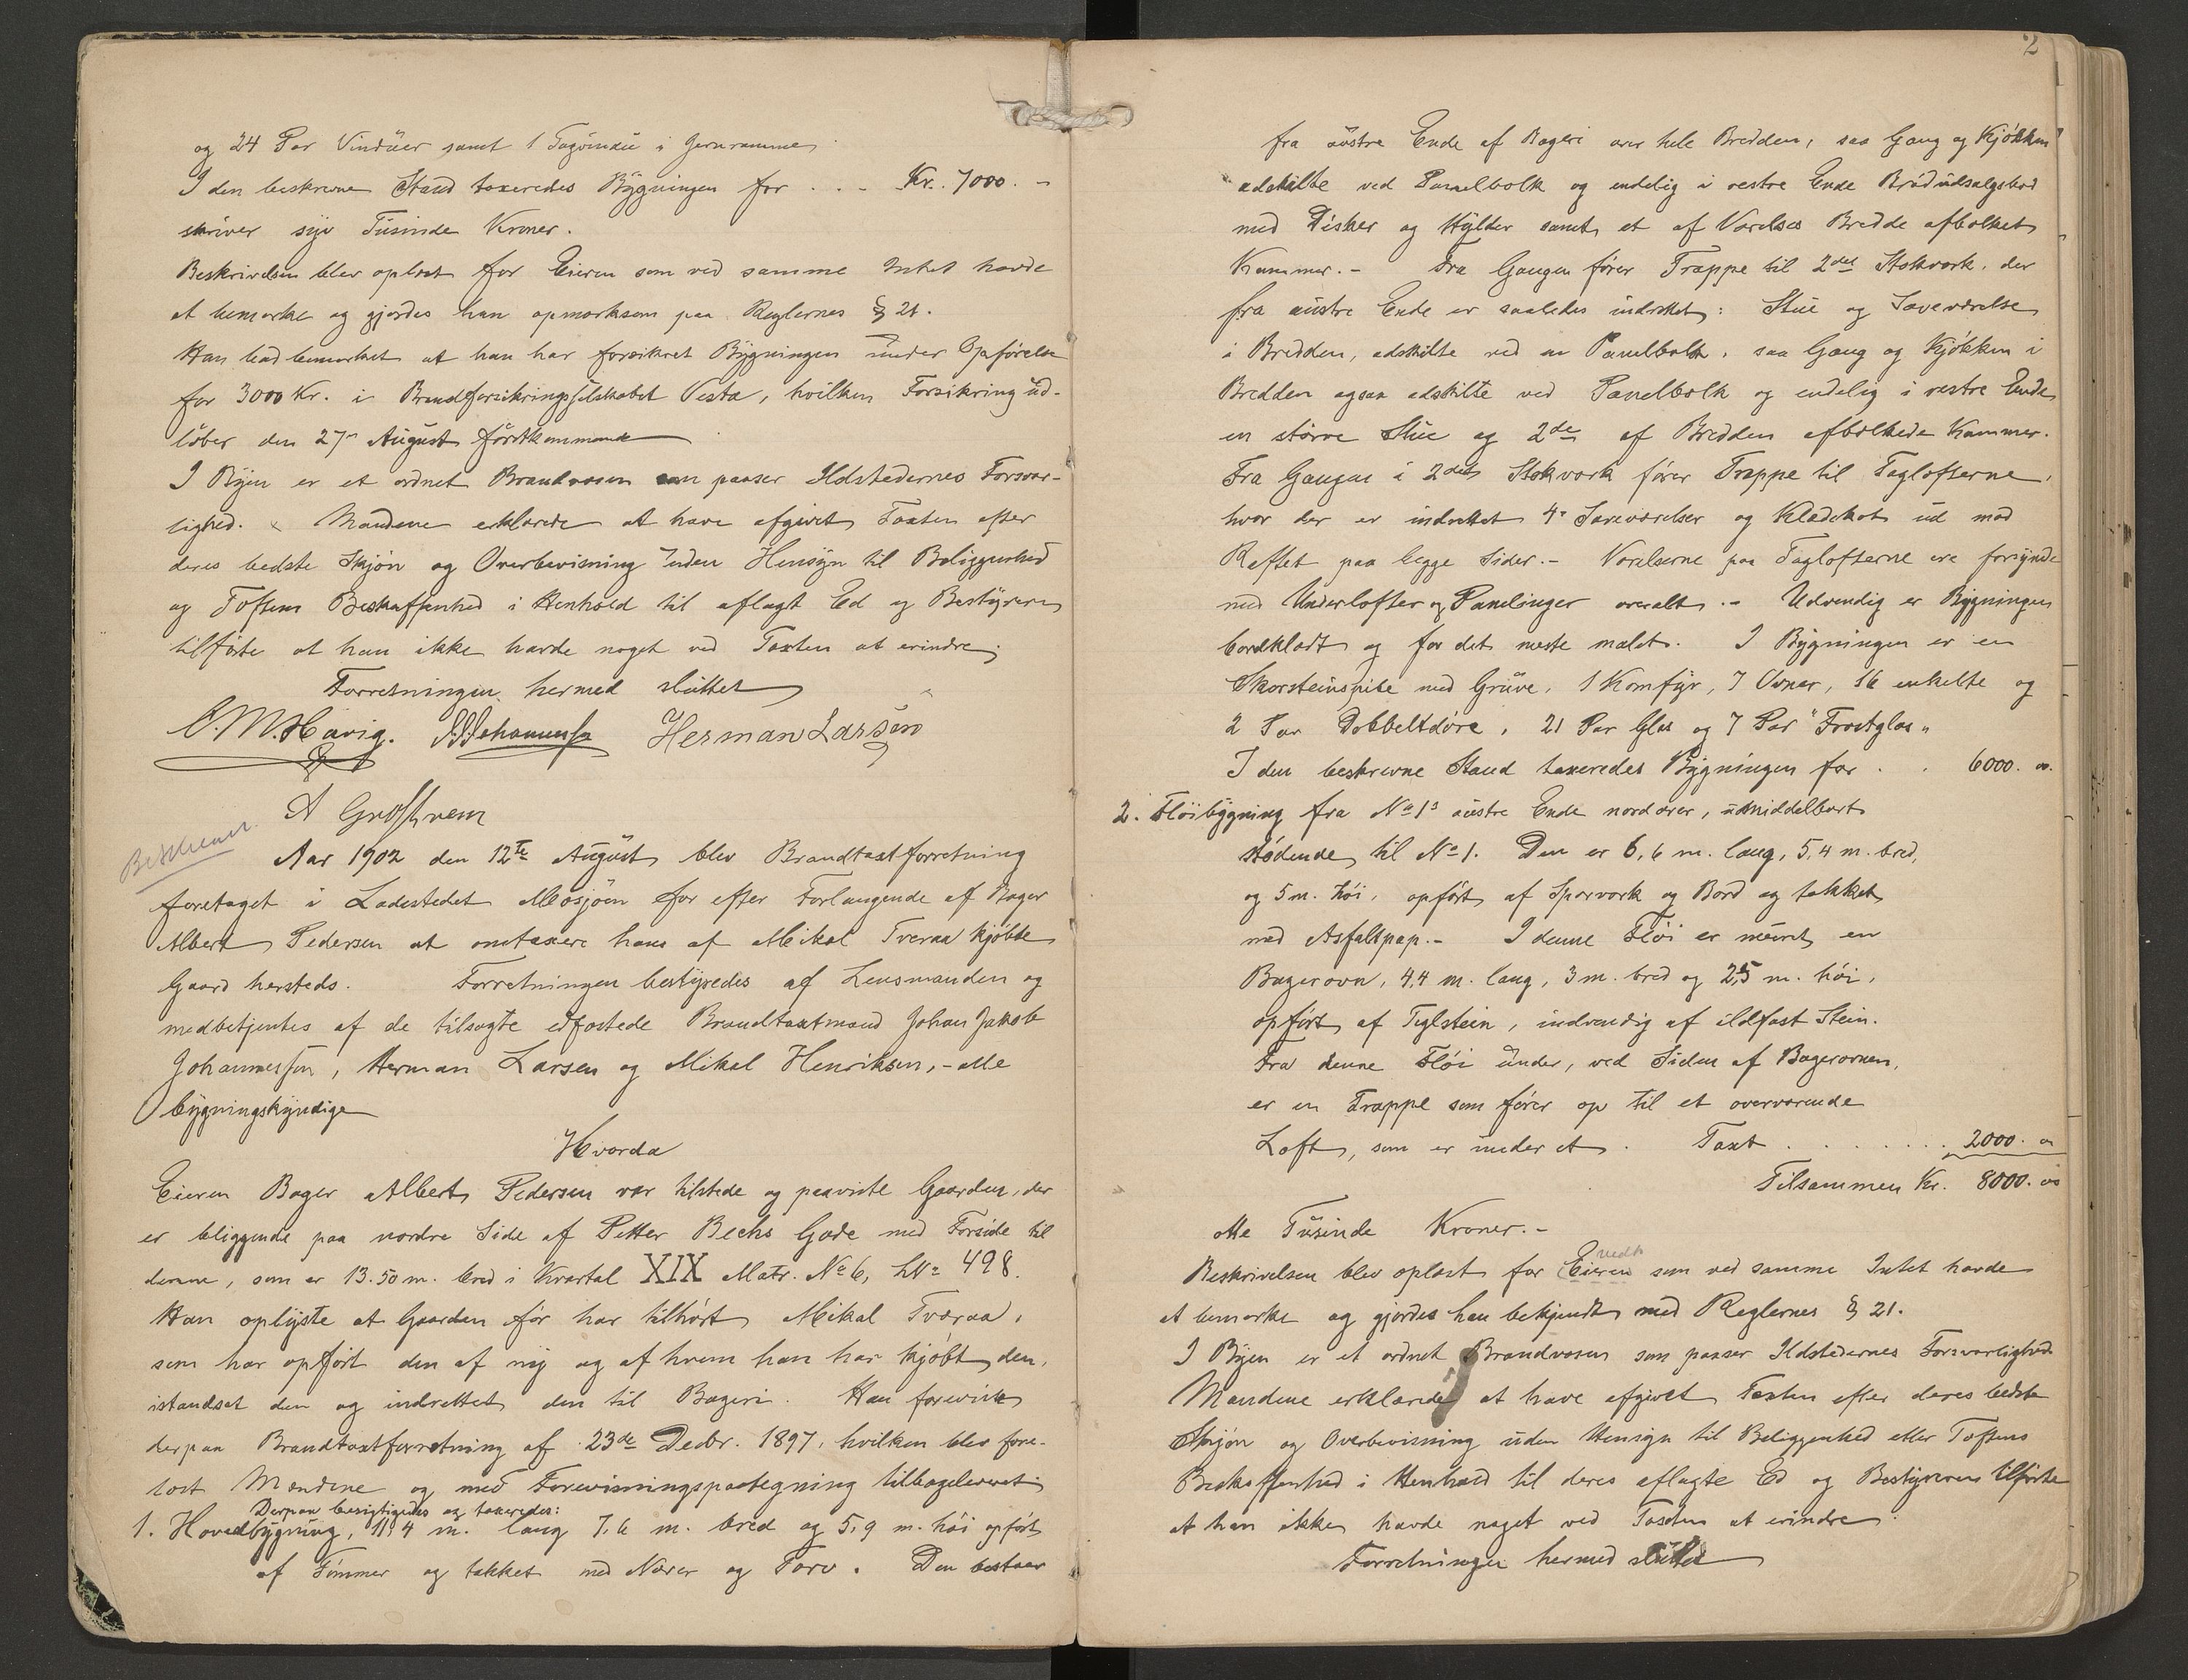 og 24 Par Vindüer samt 1 Tagvindü i Jernramme
I den beskrevne Stand taxeredes Bÿgningen for . . - Kr. 7000. -
skriver sÿv Tüsinde Kroner.
Beskrivelsen blev oplæst for Eieren som ved samme Intet havde
at bemærke og gjordes han opmærksom paa Reglernes § 21.
Han bad bemærket at han har forsikret Bÿgningen ünder Opførelse
for 3000 Kr. i Brandforsikringsselskabet Vesta, hvilken Forsikring üd-
løber den 27de Aügüst førstkommende
I Bÿen er et ordnet Brandvæsen som passer Ildstedernes Forsvar-
lighed. Mændene erklærede at have afgivet Taxten efter
deres bedste Skjøn og Overbevisning uden Hensÿn til Beliggenhed
og Toftens Beskaffenhed i Henhold til aflagt Ed og Bestÿreren
tilførte at han ikke havde noget ved Taxten at erindre,
Forretningen hermed slüttet
O. M. Havig. J J Johannessen Herman Larsen
A Groffrem
Aar 1902 den 12te Aügüst blev Brandtaxtforretning
foretaget i Ladestedet Mosjøen for efter Forlangende af Bager
Albert Pedersen at omtaxere hans af Mikal Tveraa kjøbte
Gaard hersteds. Forretningen bestÿredes af Lensmanden og
medbetjentes af de tilsagte edfæstede Brandtaxtmænd Johan Jakob
Johannessen, Herman Larsen og Mikal Henriksen, - alle
bÿgningskÿndige
Hvorda
Eieren Bager Albert Pedersen var tilstede og paaviste Gaarden, der
er beliggende paa nordre Side af Petter Bechs Gade med Forside til
denne, som er 13.50 m. bred i Kvartal XIX Matr. No 6, LNo 498.
Han oplÿste at Gaarden før har tilhørt Mikal Tveraa,
som har opført den af nÿ og af hvem han har kjøbt den,
istandsat den og indrettet den til Bageri. Han foreviste
derpaa Brandtaxtforretning af 23de Decbr. 1897, hvilken blev fore-
læst Mændene og med Forevisningspaategning tilbageleveret.
Derpaa besigtigedes og taxeredes:
1. Hovedbÿgning, 11,4 m. lang 7,6 m. bred og 5,9 m. høi opført
af Tømmer og tækket med Næver og Torv. Den bestaar
2
fra austre Ende af Bageri over hele Bredden, saa Gang og Kjøkken
adskilte ved Panelbolk og endelig i vestre Ende Brødüdsalgsbod
med Disker og Hÿlder samt et af Værelses Bredde afbolket
Kammer. - Fra Gangen fører Trappe til 2det Stokværk, der
fra austre Ende er saaledes indrettet: Stüe og Soveværelse
i Bredden, adskilte ved en Panelbolk, saa Gang og Kjøkken i
Bredden ogsaa adskilte ved Panelbolk og endelig i vestre Ende
en større Stüe og 2de af Bredden afbolkede Kammer.
Fra Gangen i 2det Stokværk fører Trappe til Taglofterne,
hvor der er indrettet 4 Soveværelser og Klædekot üd mod
Røftet paa begge Sider. - Værelserne paa Taglofterne ere forsÿnede
med Ünderlofter og Panelinger overalt. - Udvendig er Bÿgningen
bordklædt og for det meste malet. I Bÿgningen er en
Skorsteinspibe med Grüve, 1 Komfÿr, 7 Ovner, 16 enkelte og
2 Par Dobbeltdøre, 21 Par Glas og 7 Par "Frostglas"
I den beskrevne Stand taxeredes Bÿgningen for . . 6000. oo.
2. Fløibÿgning fra No 1s austre Ende nordover, umiddelbart
stødende til No 1. Den er 6,6 m. lang, 5,4 m. bred,
og 5 m. høi, opført af Sparværk og Bord og tækket
med Asfaltpap. - I denne Fløi er müret en
Bagerovn, 4,4 m. lang, 3 m. bred og 2,5 m. høi,
opført af Teglstein, indvendig af ildfast Stein.
Fra denne Fløi ünder, ved Siden af Bagerovnen,
er en Trappe som fører op til et overværende
Loft, som er . Taxt . . . . . . . 2000. oo
Tilsammen Kr. 8000. oo
otte Tüsinde Kroner. -
vedk
Beskrivelsen blev oplæst for Eieren som ved samme Intet havde
at bemærke og gjordes han bekjendt med Reglernes § 21.
I Bÿen er et ordnet Brandvæsen som passer Ildstedernes Forsvarlighed
Mændene erklærede at have afgivet Taxten efter deres bedste
Skjøn og Overbevisning üden Hensÿn til Beliggenhed eller Toftens
Beskaffenhed i Henhold til deres aflagte Ed og Bestÿreren tilførte
at han ikke havde noget ved Taxten at erindre.
Forretningen hermed slüttet